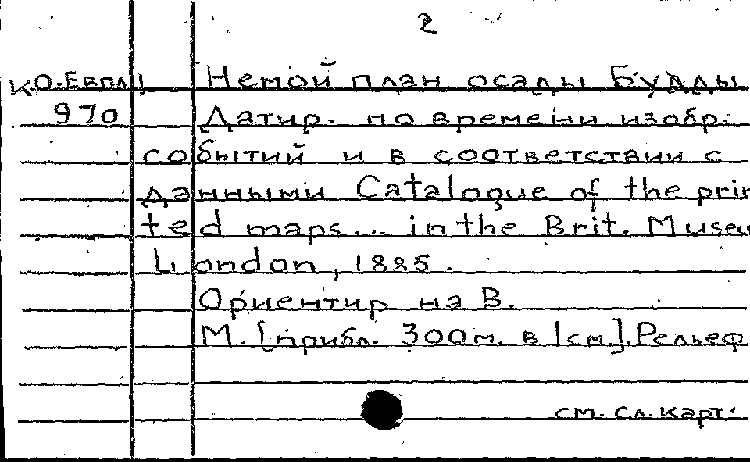 2
К.О.Евпл1 Немой план осады Будды
970 Датир. по времени изобр.
событий и в соответствии с
данными Catalogue of the prin
ted maps... in the Brit. Museu
London, 1885.
Ориентир на В.
М. [прибл. 300м. в 1см]. Рельеф
см. сл. карт.